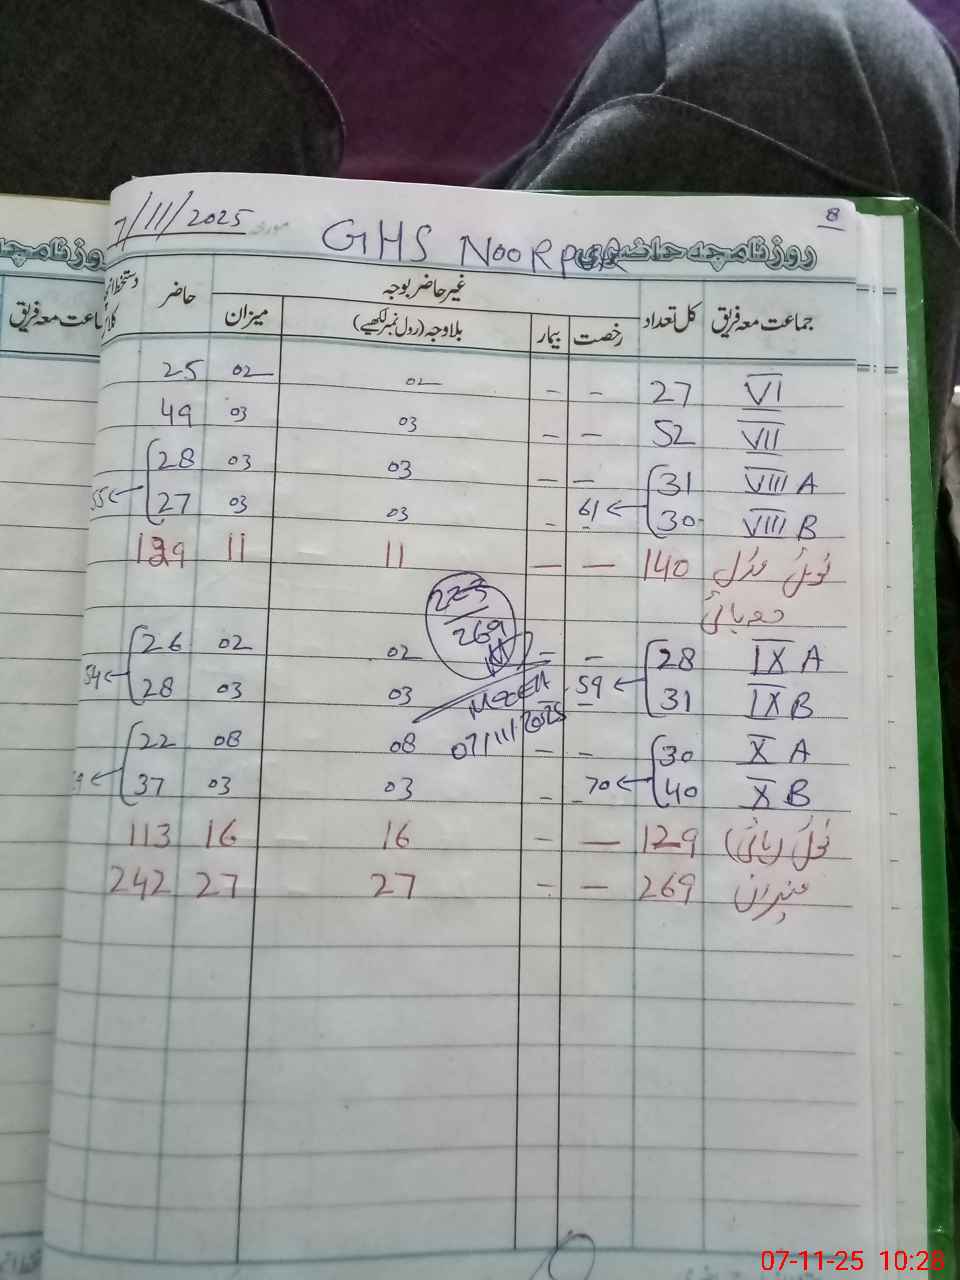 8
7/11/2025 مورخہ GHS NOORPUR روزنامچہ حاضری
جماعت معہ فریق کل تعداد غیر حاضر بوجہ حاضر
رخصت بیمار بلاوجہ (رول نمبر لکھیے) میزان
VI 27 – – 02 02 25
VII 52 – – 03 03 49
VIII A 31 – – 03 03 28
61 55
VIII B 30 – 03 03 27
ٹوٹل مڈل 140 — — 11 11 129
223
269
IX A 28 – – 02 02 26
59 54
IX B 31 – 03 03 28
MEA
07/11/2025
X A 30 – – 08 08 22
70
X B 40 – – 03 03 37
ٹوٹل (ہائی) 129 — – 16 16 113
میزان 269 — – 27 27 242
روزنامچہ
جماعت معہ فریق
07-11-25 10:28